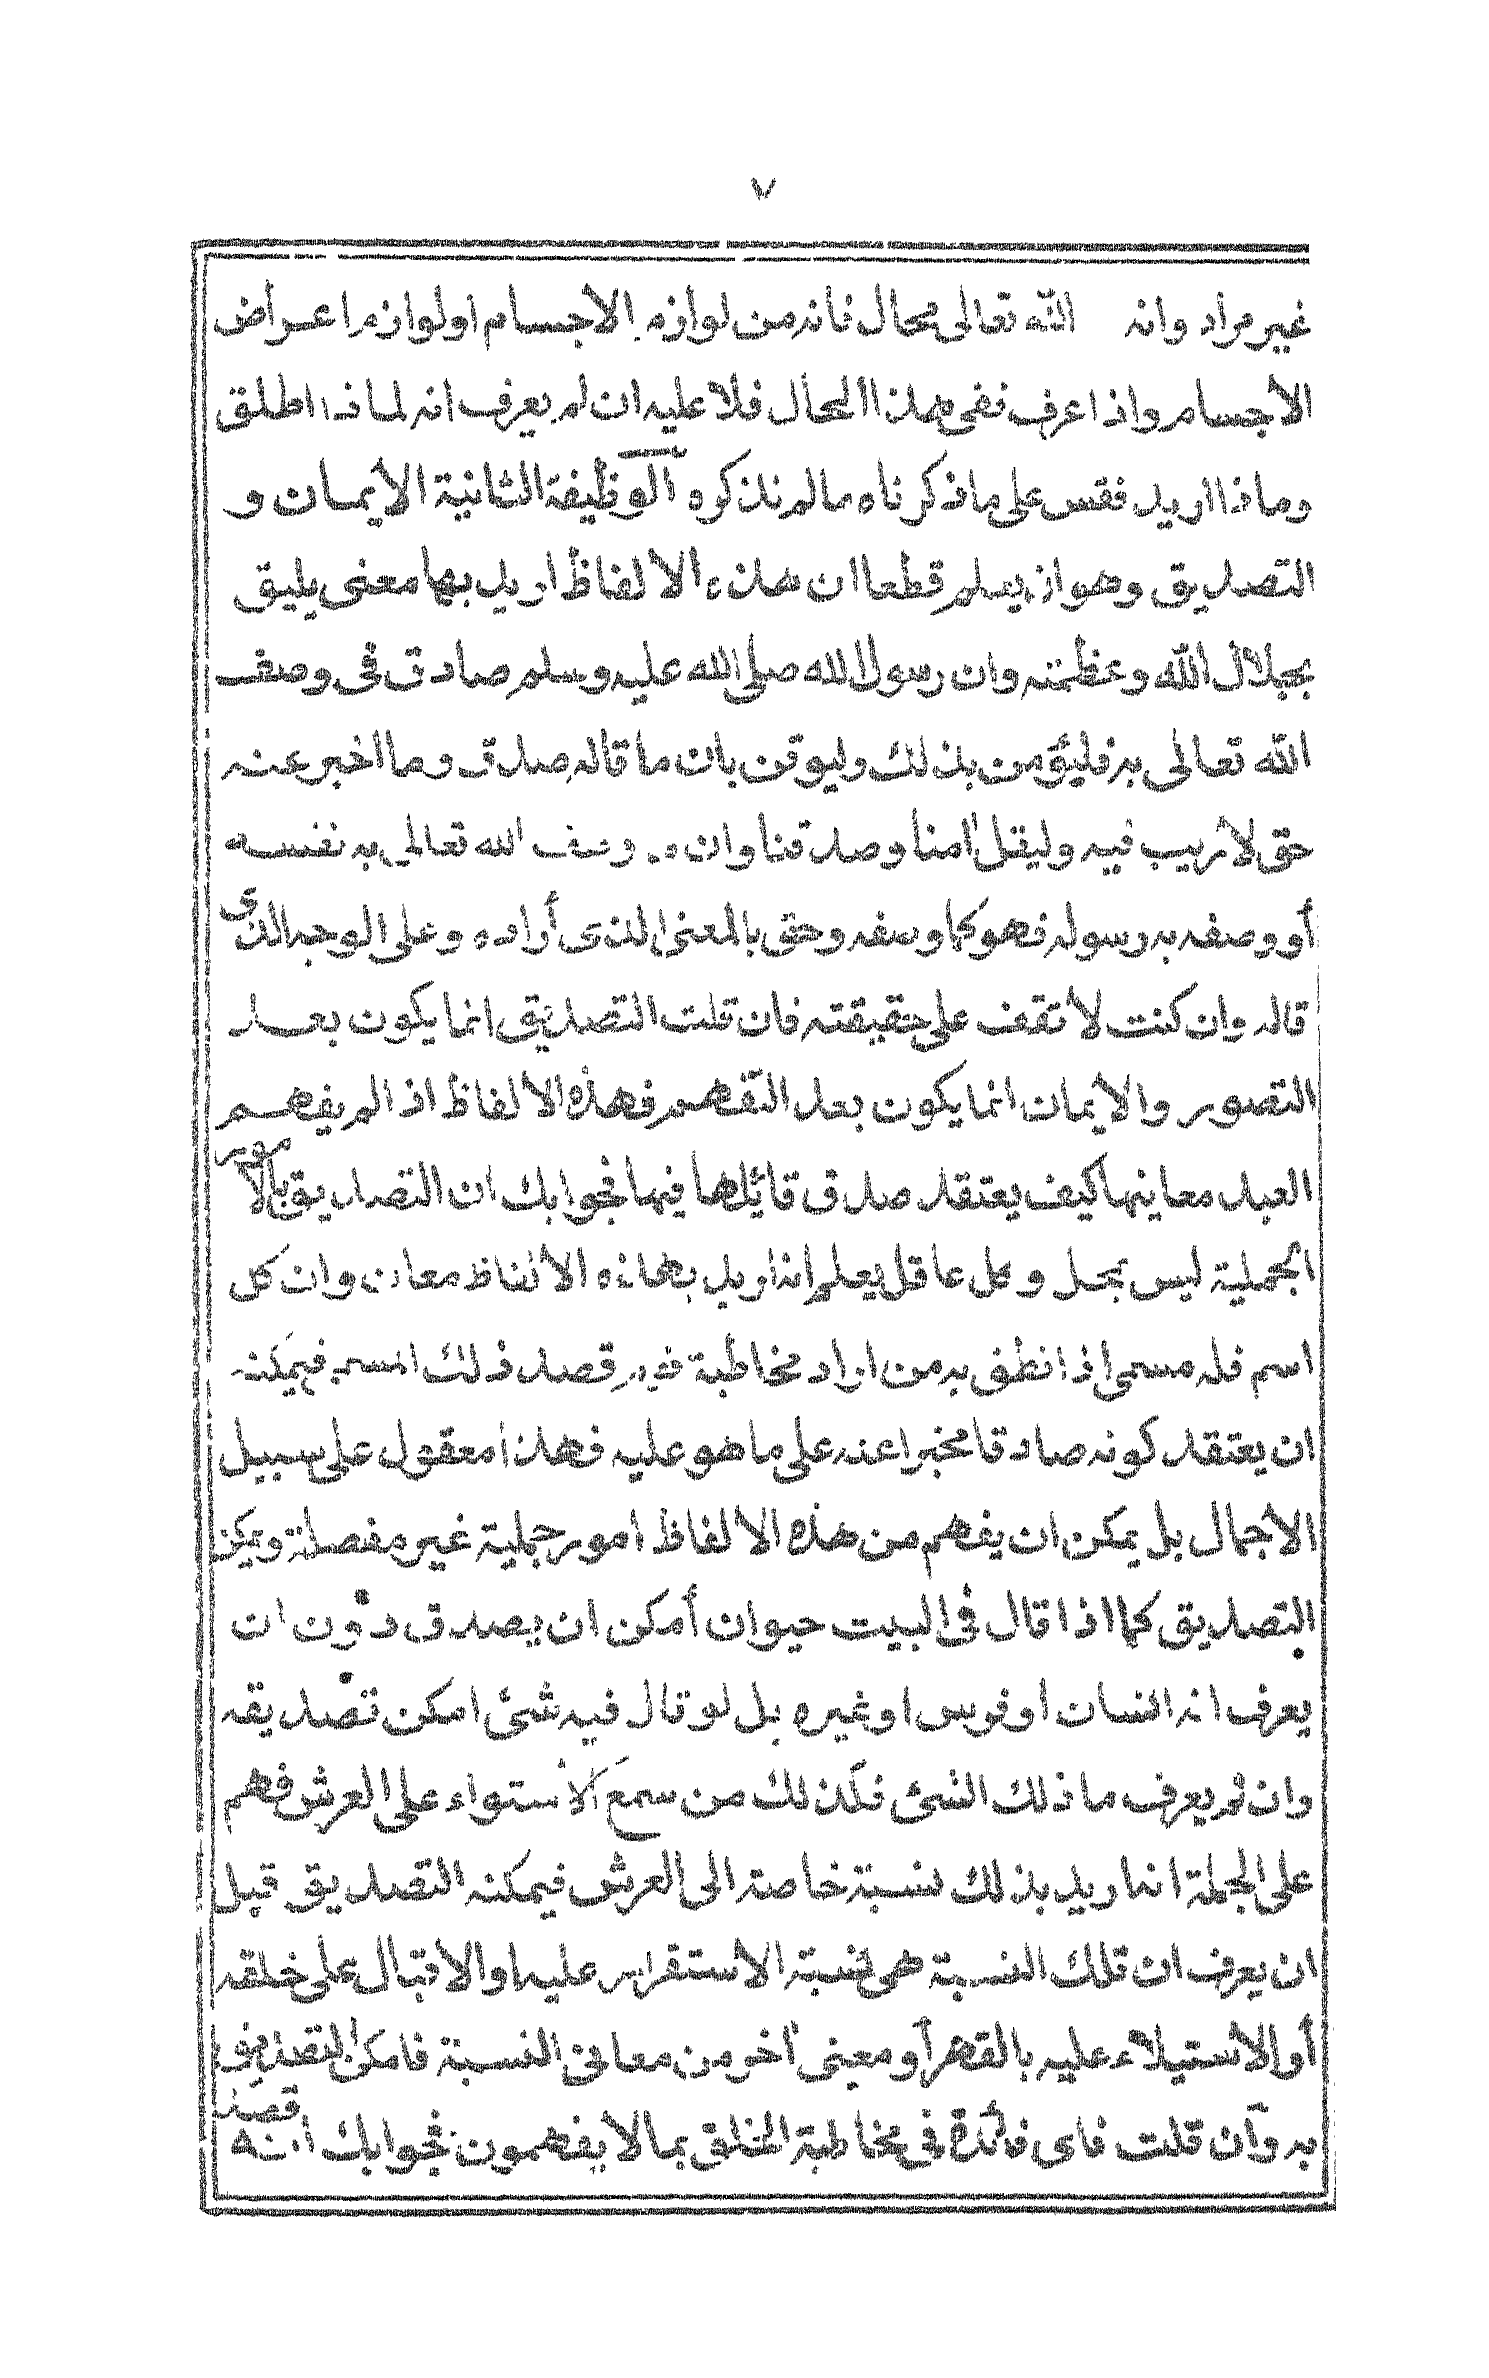 ٧
غير مراد وانه الله تعالى محال فانه من لوازم الاجسام او لوازم اعراض
الأجسام واذا عرف نفى هذا المحال فلا عليه ان لم يعرف انه لماذا اطلق
وماذا اريد فقس على ماذكرناه مالم نذكره الوظيفة الثانية الأيمان و
التصديق وهو ان يعلم قطعا ان هذه الالفاظ اريد بها معنى يليق
بجلال الله وعظمته وان رسول الله صلى الله عليه وسلم صادق فى وصف
الله تعالى به فليؤمن بذلك وليوقن بان ما قاله صدق وما اخبر عنه
حق لا ريب فيه وليقل امنا وصدقنا وان وصف الله تعالى به نفسه
أو وصفه به رسوله فهو كما وصفه وحق بالمعنى الذى أراده وعلى الوجه الذى
قاله وان كنت لا تقف على حقيقته فان قلت التصديق انما يكون بعد
التصور والايمان انما يكون بعد التفهم فهذه الالفاظ اذا لم يفهم
العبد معانيها كيف يعتقد صدق قائلها فيها فجوابك ان التصديق بالامور
الجملية ليس بمحل وكل عاقل يعلم انه اريد بهذه الالفاظ معان وان كل
اسم فله مسمى اذا نطق به من اراد مخاطبة قوم قصد ذلك المسمى فيمكنه
ان يعتقد كونه صادقا مخبرا عنه على ما هو عليه فهذا معقول على سبيل
الاجمال بل يمكن ان يفهم من هذه الالفاظ امور جملية غير مفصلة ويمكن
التصديق كما اذا قال فى البيت حيوان أمكن ان يصدق دون ان
يعرف انه انسان أو فرس او غيره بل لو قال فيه شئ امكن تصديقه
وان لم يعرف ما ذلك الشئ فكذلك من سمع الاستواء على العرش فهم
على الجملة انه اريد بذلك نسبة خاصة الى العرش فيمكنه التصديق قبل
ان يعرف ان تلك النسبة هى نسبة الاستقرار عليه او الاقبال على خلقه
أو الاستيلاء عليه بالقهر أو معنى أخر من معانى النسبة فامكن التصديق
به وان قلت فاى فائدة فى مخاطبة الخلق بما لا يفهمون فجوابك انه قصد